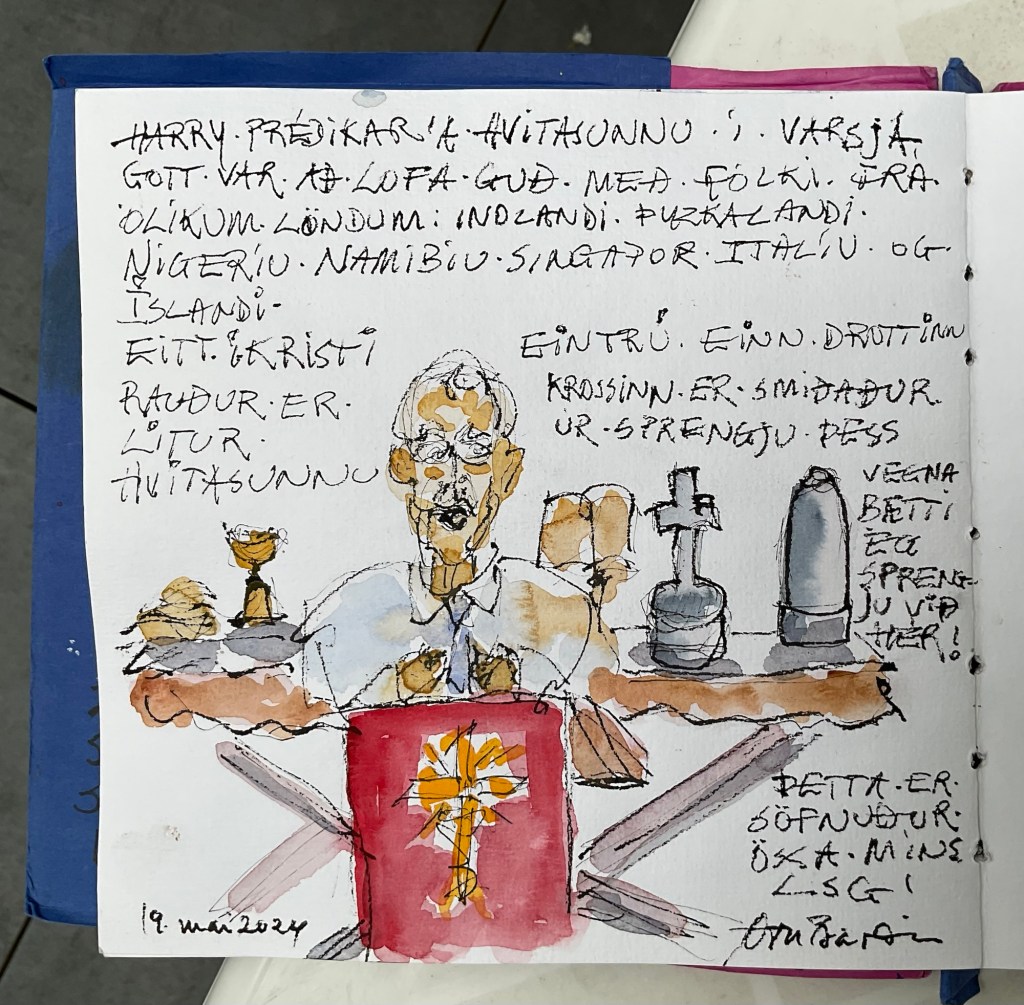 HARRY · PRÉDIKAR Á HVÍTASUNNU · Í · VARSJÁ
GOTT · VAR · AÐ · LOFA · GUÐ · MEÐ · FÓLKI · FRÁ ·
ÓLÍKUM · LÖNDUM : INDLANDI · ÞÝZKALANDI ·
NÍGERÍU · NAMIBÍU · SINGAPOR · ITALÍU · OG ·
ÍSLANDI -
EITT · Í KRISTI
EIN TRÚ · EINN · DROTTINN
RAUÐUR · ER ·
LITUR ·
HVÍTASUNNU
KROSSINN · ER · SMÍÐAÐUR
ÚR · SPRENGJU · ÞESS
VEGNA
BÆTTI
ÉG
SPRENG-
JU VIÐ
HÉR !
ÞETTA · ER ·
SÖFNUÐUR ·
MÍNS
19. mai 2024